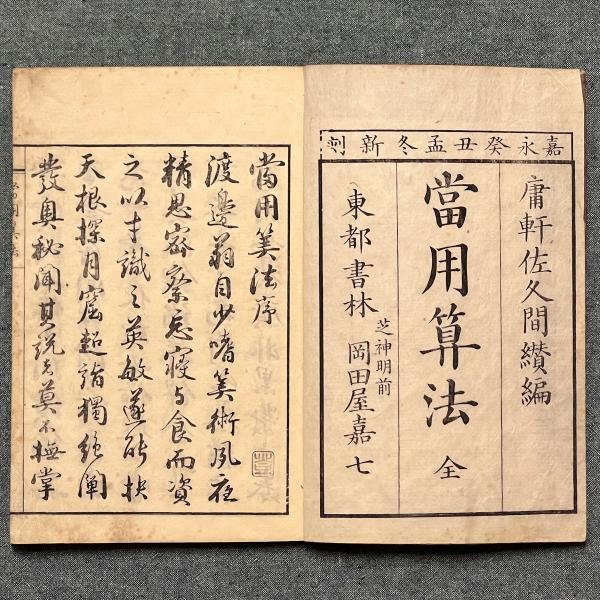 嘉永癸丑孟冬新刻
庸軒佐久間纉編
當用算法 全
東都書林 芝神明前 岡田屋嘉七
當用筭法序
渡邊翁自少嗜筭術夙夜
精思密察忘寝与食而資
之以才識之英敏遂能抉
天根探月窟超詣獨絶闡
發奥秘聞其説者莫不撫掌